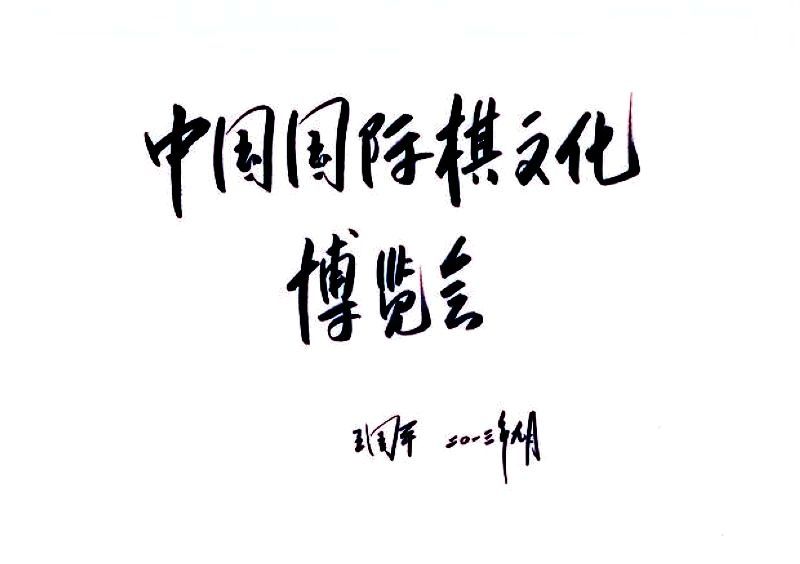 中国国际棋文化
博览会
王国平 二〇一三年九月